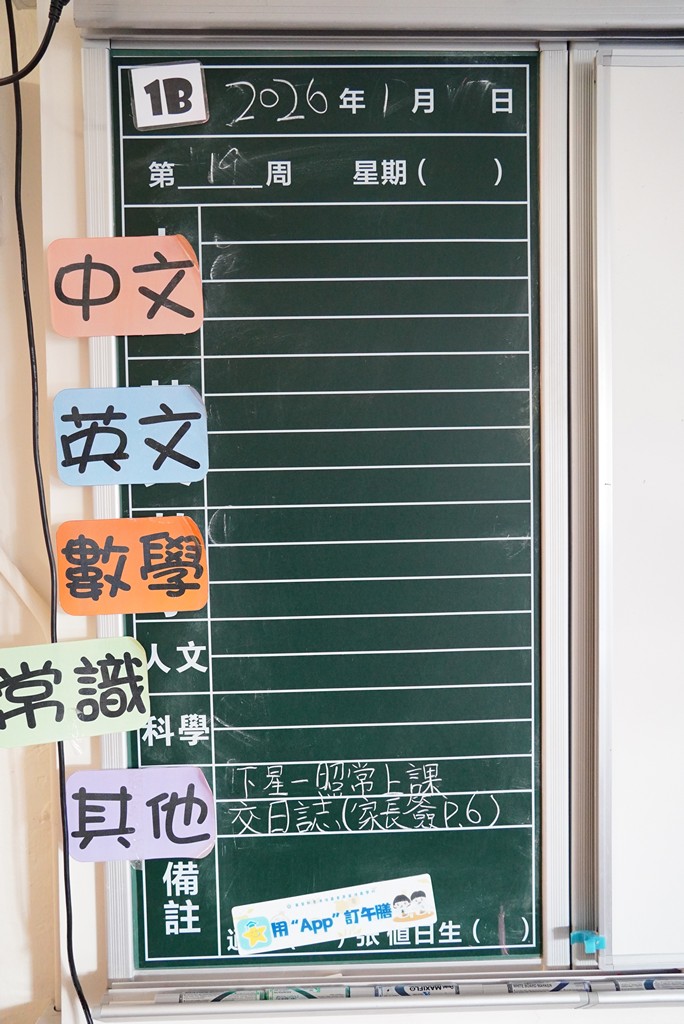 1B 2026年1月 日
第 19 周 星期( )
中文
英文
數學
人文
常識
科學
下星一照常上課
其他
交日誌(家長簽P.6)
備註
用“App”訂午膳
張 值日生( )
MAXIFLO